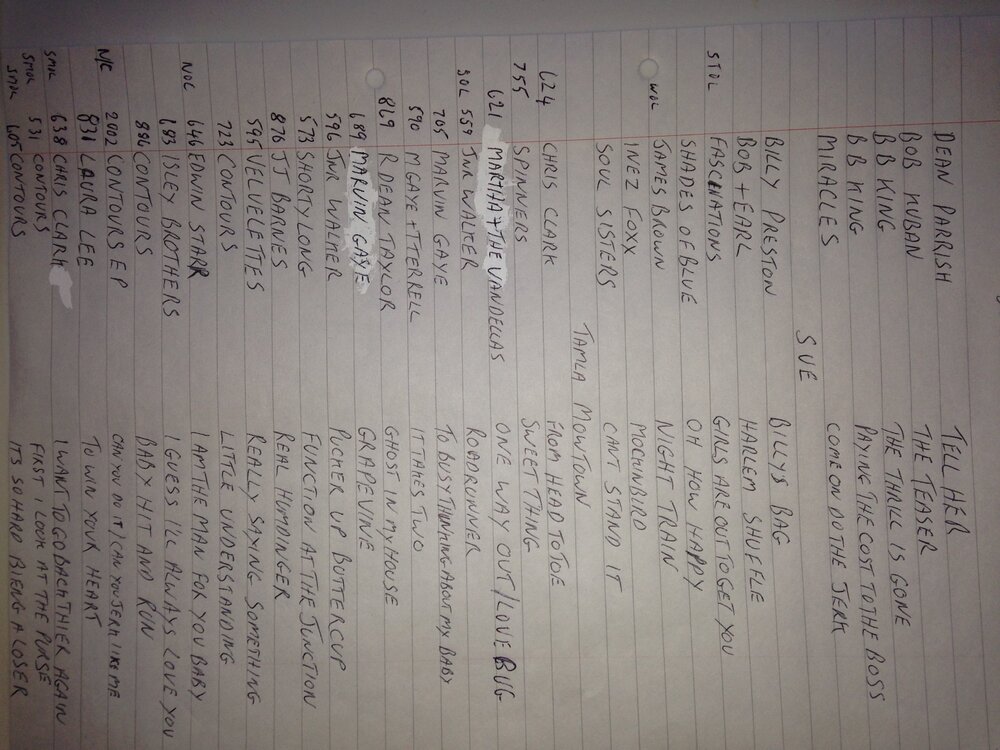 DEAN PARRISH TELL HER
BOB KUBAN THE TEASER
B B KING THE THRILL IS GONE
B B KING PAYING THE COST TO THE BOSS
MIRACLES COME ON DO THE JERK
SUE
BILLY PRESTON BILLYS BAG
BOB + EARL HARLEM SHUFFLE
STOL FASCINATIONS GIRLS ARE OUT TO GET YOU
SHADES OF BLUE OH HOW HAPPY
JAMES BROWN NIGHT TRAIN
WOL INEZ FOXX MOCKINBIRD
SOUL SISTERS CANT STAND IT
TAMLA MOWTOWN
624 CHRIS CLARK FROM HEAD TO TOE
755 SPINNERS SWEET THING
621 MARTHA + THE VANDELLAS ONE WAY OUT / LOVE BUG
SOL 559 JNR WALKER ROADRUNNER
705 MARVIN GAYE TO BUSY THINKING ABOUT MY BABY
590 M GAYE + T TERRELL IT TAKES TWO
869 R DEAN TAYLOR GHOST IN MY HOUSE
689 MARVIN GAYE GRAPEVINE
596 JNR WALKER PUCKER UP BUTTERCUP
573 SHORTY LONG FUNCTION AT THE JUNCTION
870 JJ BARNES REAL HUMDINGER
595 VELVELETTES REALLY SAYING SOMETHING
723 CONTOURS LITTLE UNDERSTANDING
NOL 646 EDWIN STARR I AM THE MAN FOR YOU BABY
683 ISLEY BROTHERS I GUESS I'LL ALWAYS LOVE YOU
886 CONTOURS BABY HIT AND RUN
N/C 2002 CONTOURS EP CAN YOU DO IT / CAN YOU JERK LIKE ME
831 LAURA LEE TO WIN YOUR HEART
SMOL 638 CHRIS CLARK I WANT TO GO BACK THIER AGAIN
SMOL 531 CONTOURS FIRST I LOOK AT THE PURSE
SMOL 605 CONTOURS ITS SO HARD BIENG A LOSER